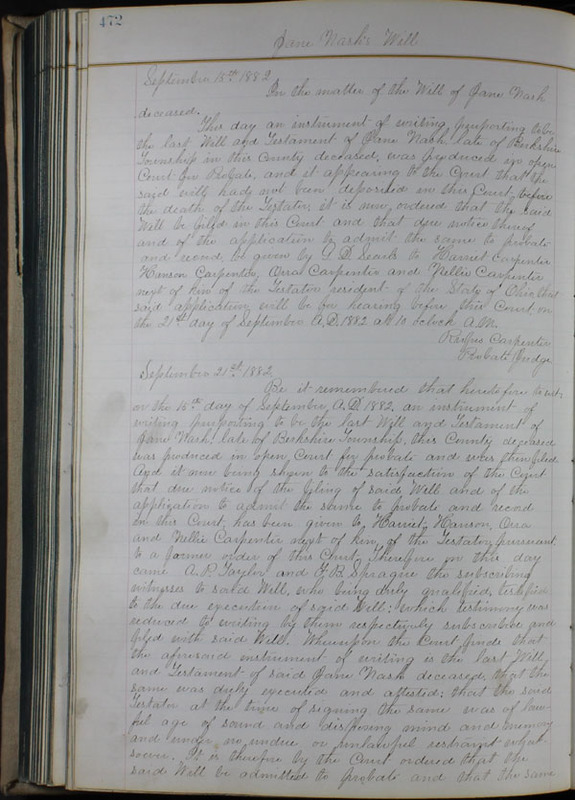 472
Jane Nash's Will
September 18th 1882
In the matter of the Will of Jane Nash
deceased.
This day an instrument of writing purporting to be
the last Will and Testament of Jane Nash, late of Berkshire
Township in this County deceased, was produced in open
Court for Probate, and it appearing to the Court that the
said will had not been deposited in this Court before
the death of the Testator, it is now ordered that the said
Will be filed in this Court and that due notice thereof
and of the application to admit the same to probate
and record be given by G. D. Searls to Harriet Carpenter
Hanson Carpenter, Orra Carpenter and Nellie Carpenter
next of kin of the Testator resident of the State of Ohio, that
said application will be for hearing before this Court on
the 21st day of September A.D. 1882 at 10 oclock A.M.
Rufus Carpenter
Probate Judge
September 21st 1882
Be it remembered that heretofore to wit,
on the 18th day of September, A.D. 1882, an instrument of
writing purporting to be the last Will and Testament of
Jane Nash, late of Berkshire Township, this County deceased
was produced in open Court for probate and was then filed
And it now being shown to the satisfaction of the Court
that due notice of the filing of said Will and of the
application to admit the same to probate and record
in this Court, has been given to Harriet, Hanson, Orra
and Nellie Carpenter next of kin, of the Testator, pursuant
to a former order of this Court. Therefore on this day
came A. P. Taylor and F. B. Sprague the subscribing
witnesses to said Will, who being duly qualified, testified
to the due execution of said Will; which testimony was
reduced to writing by them respectively subscribed and
filed with said Will. Whereupon the Court finds that
the aforesaid instrument of writing is the last Will
and Testament of said Jane Nash deceased, that the
same was duly executed and attested; that the said
Testator at the time of signing the same was of law
ful age of sound and disposing mind and memory
and under no undue or unlawful restraint what
soever. It is therefore by the Court ordered that the
said Will be admitted to probate and that the same